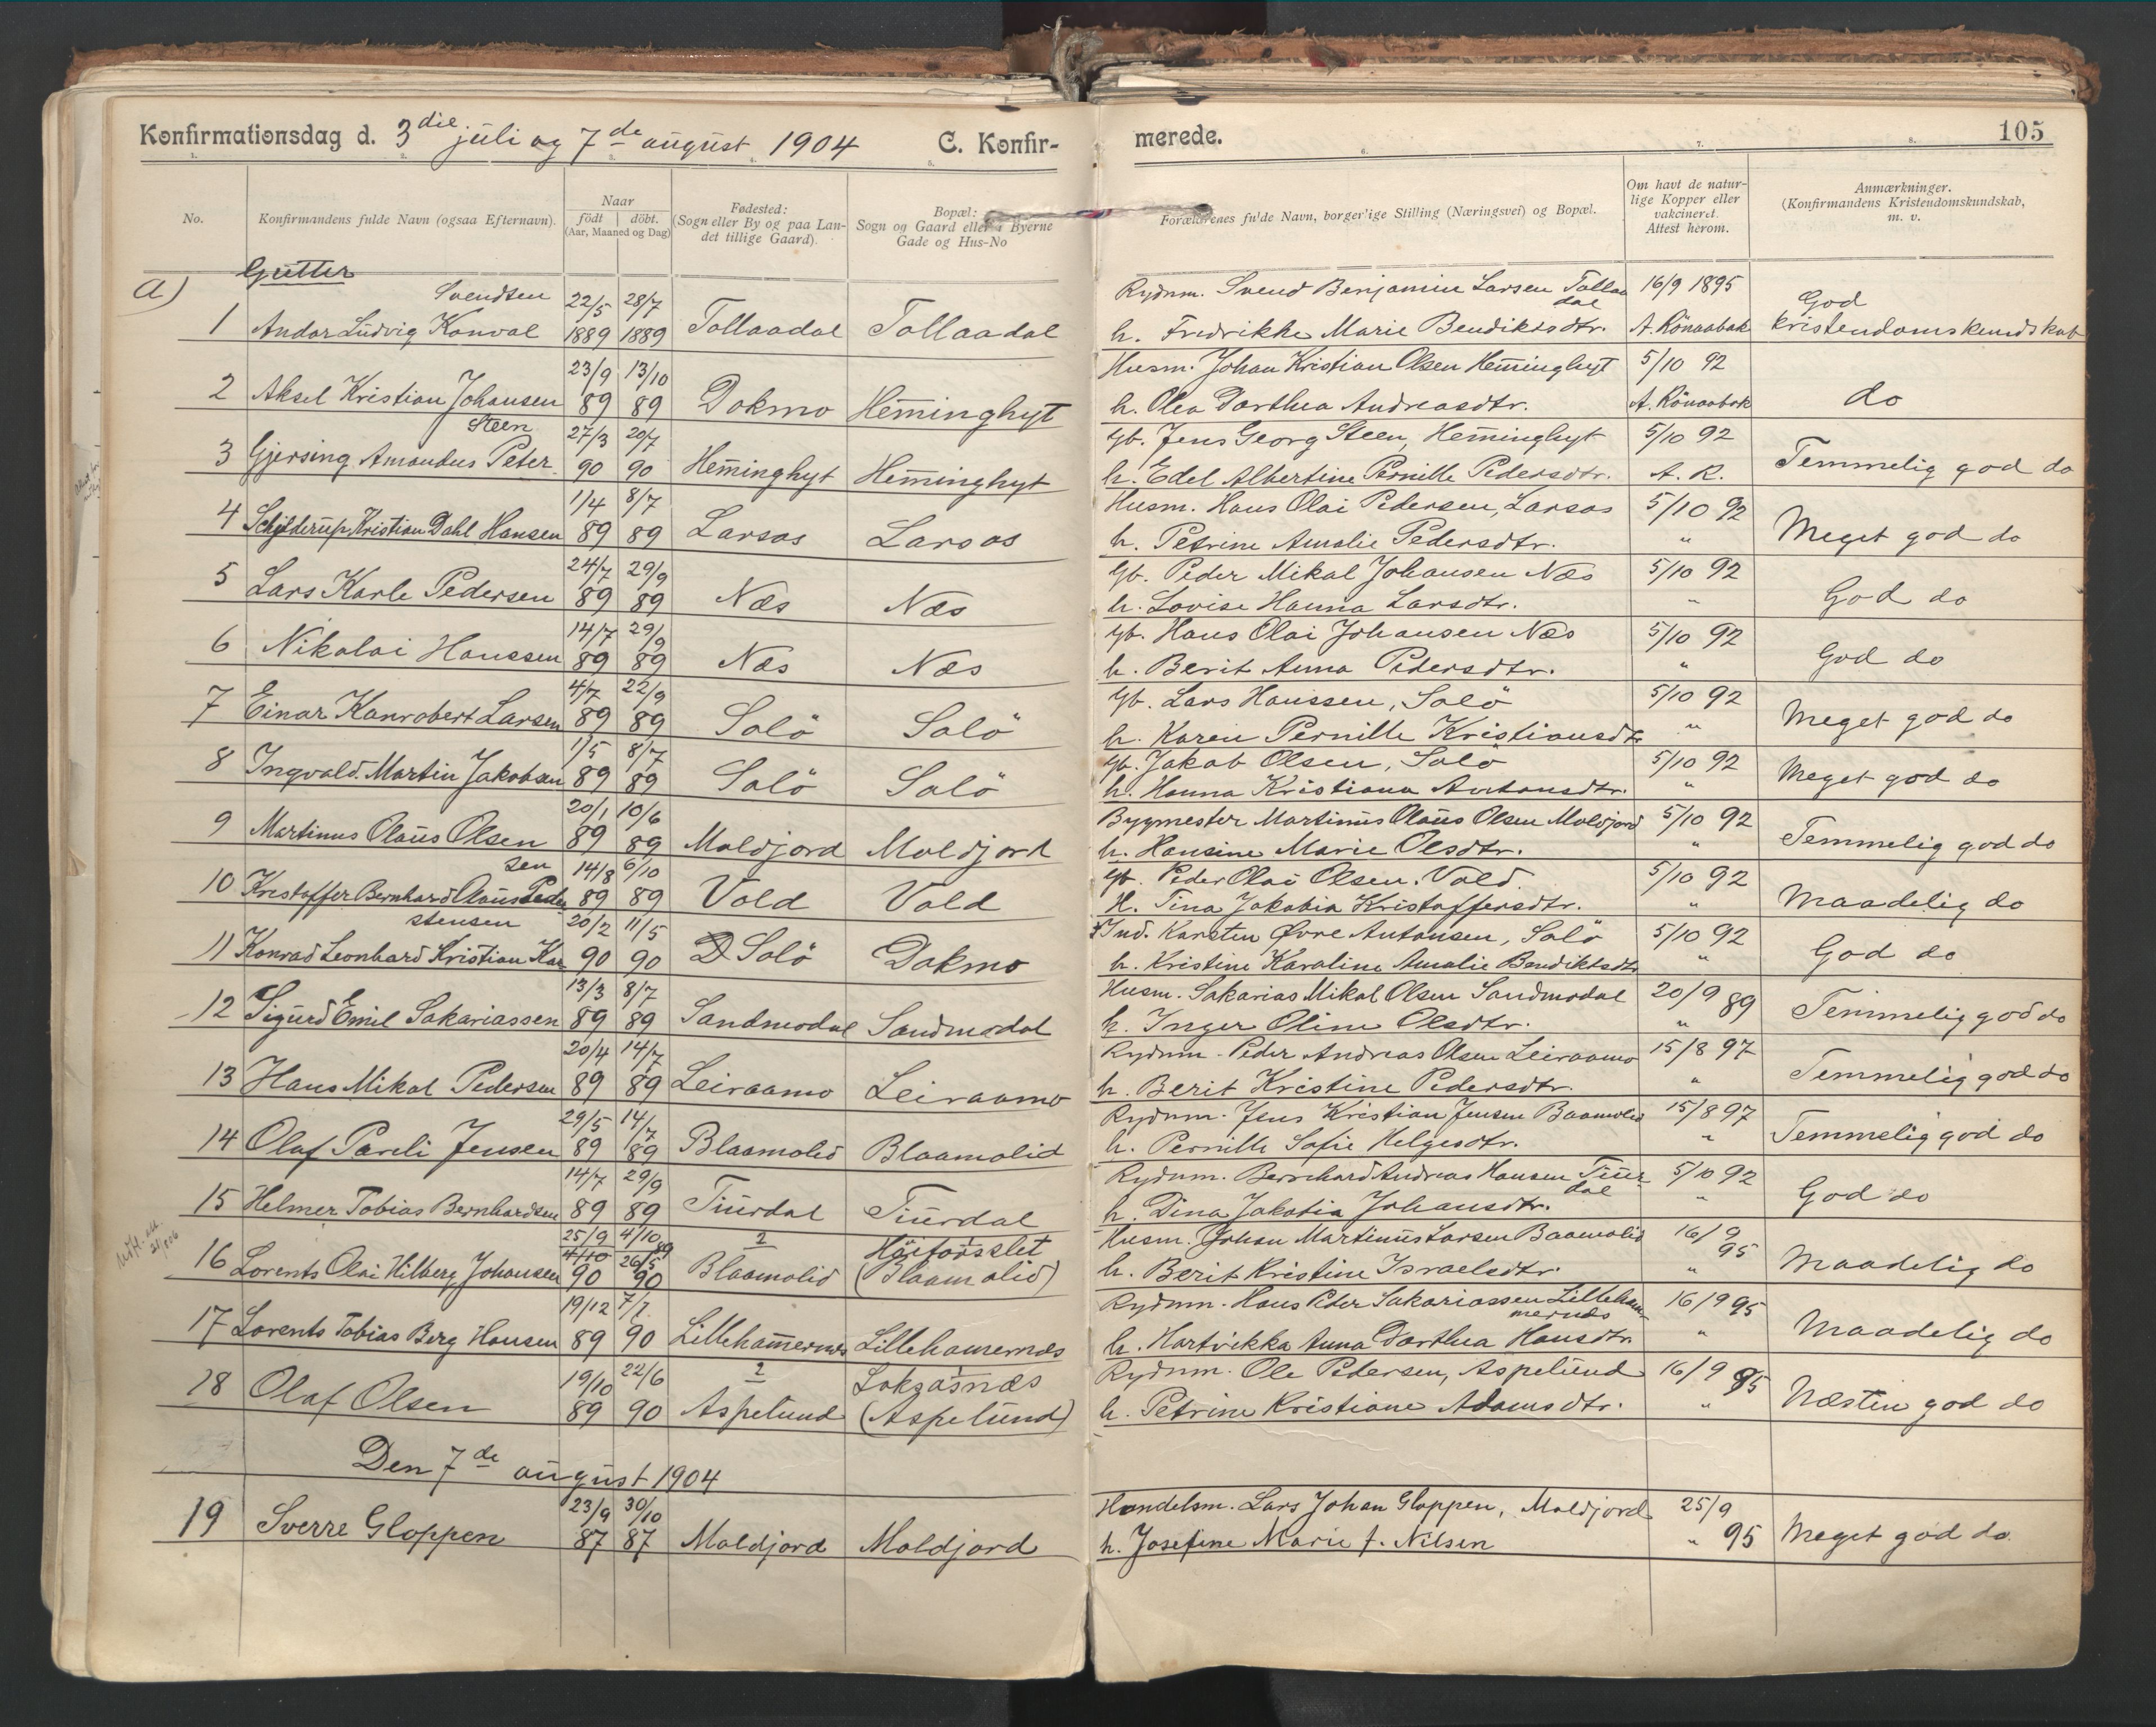 Konfirmationsdag d. 3die juli og 7de august 1904 C. Konfir-merede. 105
1. 2. 3. 4. 5. 6. 7. 8.
No. Konfirmandens fulde Navn (ogsaa Efternavn). Naar født döbt. (Aar, Maaned og Dag) Fødested: (Sogn eller By og paa Landet tillige Gaard). Bopæl: Sogn og Gaard eller i Byerne Gade og Hus-No Forældrenes fulde Navn, borgerlige Stilling (Næringsvei) og Bopæl. Om havt de naturlige Kopper eller vakcineret. Attest herom. Anmærkninger. (Konfirmandens Kristendomskundskab, m. v.
a) Gutter
Svendsen 22/5 28/7 Rydnm. Svend Benjamin Larsen Tollaadal 16/9 1895 God
1 Andor Ludvig Konval 1889 1889 Tollaadal Tollaadal h. Fredrikke Marie Bendiktsdtr. A. Rönaabak kristendomskundskab
23/9 13/10 Husm. Johan Kristian Olsen Hemminghyt 5/10 92
2 Aksel Kristian Johansen 89 89 Dokmo Hemminghyt h. Olea Dorthea Andreasdtr. A. Rönaabak do
Steen 27/3 20/7 Gb. Jens Georg Steen, Hemminghyt 5/10 92
3 Gjersing Amandus Peter 90 90 Hemminghyt Hemminghyt h. Edel Albertine Pernille Pedersdtr. A. R. Temmelig god do
1/4 8/7 Husm. Hans Olai Pedersen, Larsos 5/10 92
4 Schjelderup Kristian Dahl Hansen 89 89 Larsos Larsos h. Petrine Amalie Pedersdtr. " Meget god do
24/7 29/9 Gb. Peder Mikal Johansen Næs 5/10 92
5 Lars Karle Pedersen 89 89 Næs Næs h. Lovise Hanna Larsdtr. " God do
14/7 29/9 Gb. Hans Olai Johansen Næs 5/10 92
6 Nikolai Hanssen 89 89 Næs Næs h. Berit Anna Pedersdtr. " God do
4/7 22/9 Gb. Lars Hanssen, Solö 5/10 92
7 Einar Kanrobert Larsen 89 89 Solö Solö h. Karen Pernille Kristiansdtr " Meget god do
1/5 8/7 Gb. Jakob Olsen, Solö 5/10 92
8 Ingvald Martin Jakobsen 89 89 Solö Solö h. Hanna Kristiana Antonsdtr. " Meget god do
20/1 10/6 Bygmester Martinus Olaus Olsen Moldjord 5/10 92
9 Martinus Olaus Olsen 89 89 Moldjord Moldjord h. Hansine Marie Olsdtr. " Temmelig god do
sen 14/8 6/10 Gb. Peder Olai Olsen, Vold. 5/10 92
10 Kristoffer Bernhard Olaus Peder 89 89 Vold Vold H. Tina Jakobia Kristoffersdtr. " Maadelig do
stensen 20/2 11/5 Ind. Karsten Øvre Antonsen, Solö 5/10 92
11 Konrad Leonhard Kristian Kar 90 90 Solö Dokmo h. Kristine Karoline Amalie Bendiktsdtr " God do
13/3 8/7 Husm. Sakarias Mikal Olsen Sandmodal 20/9 89
12 Sigurd Emil Sakariassen 89 89 Sandmodal Sandmodal h. Inger Oline Olsdtr. " Temmelig god do
20/4 14/7 Rydnm. Peder Andreas Olsen Leiraamo 15/8 97
13 Hans Mikal Pedersen 89 89 Leiraamo Leiraamo h. Berit Kristine Pedersdtr. " Temmelig god do
29/5 14/7 Rydnm. Jens Kristian Jensen Baamolid 15/8 97
14 Olaf Pareli Jensen 89 89 Blaamolid Blaamolid h. Pernille Sofie Helgesdtr. " Temmelig god do
14/7 29/9 Rydnm. Bernhard Andreas Hansen Tiurdal 5/10 92
15 Helmer Tobias Bernhardsen 89 89 Tiurdal Tiurdal h. Dina Jakobia Johansdtr. " God do
25/9 4/10 89 2 1 Höiforsslet Husm. Johan Martinus Larsen Baamolid 16/9 95
16 Lorents Olai Hilberg Johansen 4/10 90 26/5 90 Blaamolid (Blaamolid) h. Berit Kristine Israelsdtr. " Maadelig do
19/12 7/7 Rydnm. Hans Peder Sakariassen Lillehammernæs 16/9 95
17 Lorents Tobias Berg Hansen 89 90 Lillehammernæs Lillehammernæs h. Hartvikka Anna Dorthea Hansdtr. " Maadelig do
19/10 22/6 2 1 Loksasnæs Rydnm. Ole Pedersen, Aspelund 16/9 95
18 Olaf Olsen 89 90 Aspelund (Aspelund) h. Petrine Kristiane Adamsdtr. " Næsten god do
Den 7de august 1904
23/9 30/10 Handelsm. Lars Johan Gloppen, Moldjord 25/9
19 Sverre Gloppen 87 87 Moldjord Moldjord h. Josefine Marie f. Nilsen " 95 Meget god do.